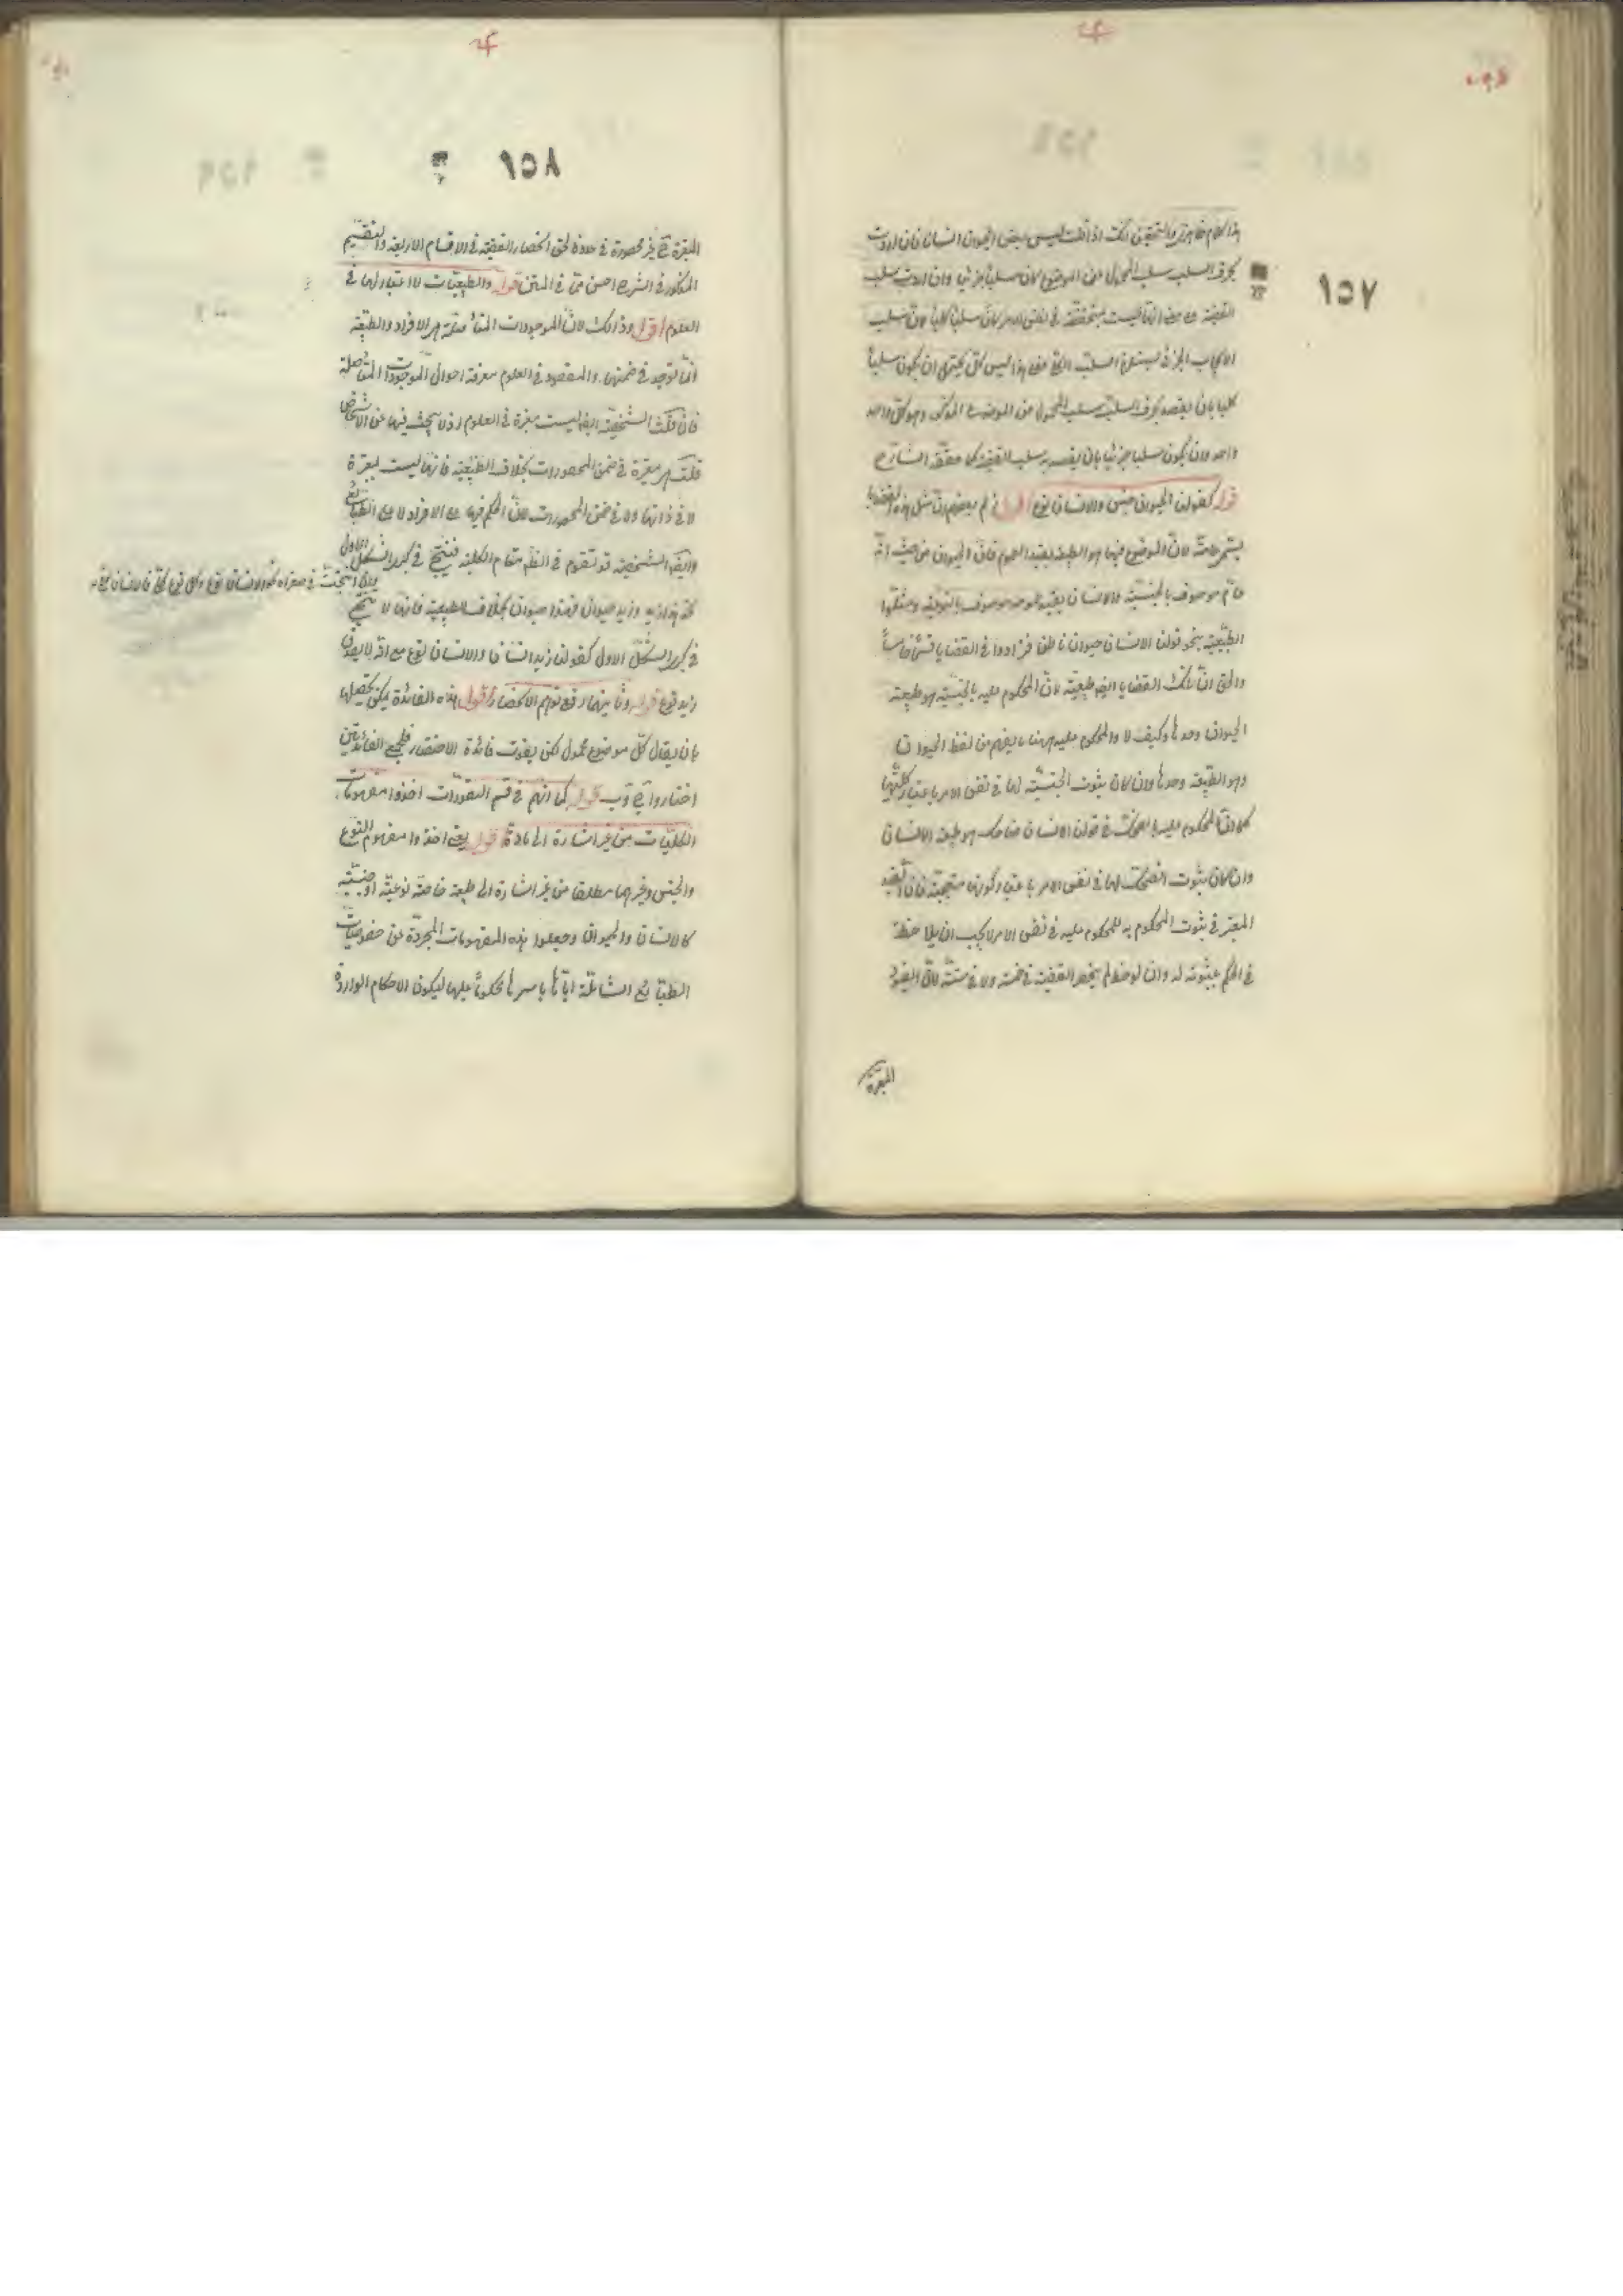 ١٥٧
هذا كلام ظاهرى والتحقيق انك اذا قلت ليس بعض الحيوان انسانا فان اردت
بحرف السلب سلب المحمول عن الموضوع كان سلبا جزئيا وان اردت سلب
القضية على معنى انها ليست متحققة فى نفس الامر كان سلبا كليا لان سلب
الايجاب الجزئى يستلزم السلب الكلى فعلى هذا ليس كل يحتمل ان يكون سلبا
كليا بان يقصد بحرف السلب سلب المحمول عن الموضوع المذكور وهو كل واحد
واحد وان يكون سلبا جزئيا بان يقصد به سلب القضية كما حققه الشارح
قوله كقولنا الحيوان جنس والانسان نوع اقول زعم بعضهم ان مثل هذه القضايا
يسمى عامة لان الموضوع فيها هو الطبيعة بقيد العموم فان الحيوان من حيث انه
عام موصوف بالجنسية والانسان بقيد عمومه موصوف بالنوعية ومثلوا
الطبيعية بنحو قولنا الانسان حيوان ناطق فزادوا فى القضايا قسما خامسا
والحق ان تلك القضايا ايضا طبيعية لان المحكوم عليه بالجنسية هو طبيعة
الحيوان وحدها وكيف لا والمحكوم عليه ههنا ما يفهم من لفظ الحيوان
وهو الطبيعة وحدها وان كان ثبوت الجنسية لها فى نفس الامر باعتبار كليتها
كما ان المحكوم عليه بالضحك فى قولنا الانسان ضاحك هو طبيعة الانسان
وان كان ثبوت الضحك لها فى نفس الامر باعتبار كونها متعجبة فان القيد
المعتبر فى ثبوت المحكوم به للمحكوم عليه فى نفس الامر لا يجب ان يلاحظ
فى الحكم بثبوته له وان لوحظ لم ينحصر القضية فى خمسة ولا فى ستة لان القيود
المعتبرة
١٥٨
المعتبرة ح غير محصورة فى حدود فالحق انحصار القضية فى الاقسام الاربعة والتقسيم
المذكور فى الشرح احسن مما فى المتن قوله والطبيعيات لا اعتبار لها فى
العلوم اقول وذلك لان الموجودات المتأصلة هى الافراد والطبيعة
انما توجد فى ضمنها والمقصود فى العلوم معرفة احوال الموجودات المتأصلة
فان قلت الشخصية ايضا ليست معتبرة فى العلوم اذ لا يبحث فيها عن الاشخاص
قلت هى معتبرة فى ضمن المحصورات بخلاف الطبيعية فانها ليست بمعتبرة
لا فى ذاتها ولا فى ضمن المحصورات لان الحكم فيها على الافراد لا على الطبائع
وايضا الشخصية قد تقوم فى الظاهر مقام الكلية فينتج فى كبرى الشكل الاول
نحو هذا زيد وزيد حيوان فهذا حيوان بخلاف الطبيعية فانها لا تنتج
فى كبرى الشكل الاول كقولنا زيد انسان والانسان نوع مع انه لا يصدق
زيد نوع قوله وثانيهما رفع توهم الانحصار اقول هذه الفائدة يمكن تحصيلها
بان يقال كل موضوع محمول لكن يفوت فائدة الاختصار فلجمع الفائدتين
اختاروا ج وب قوله كما انهم فى قسم التصورات اخذوا مفهومات
الكليات من غير اشارة الى مادة اقول يعنى اخذوا مفهوم النوع
والجنس وغيرهما مطلقا من غير اشارة الى طبيعة خاصة نوعية او جنسية
كالانسان والحيوان وجعلوا هذه المفهومات المجردة عن خصوصيات
الطبائع الشاملة اياها باسرها محكوما عليها ليكون الاحكام الواردة